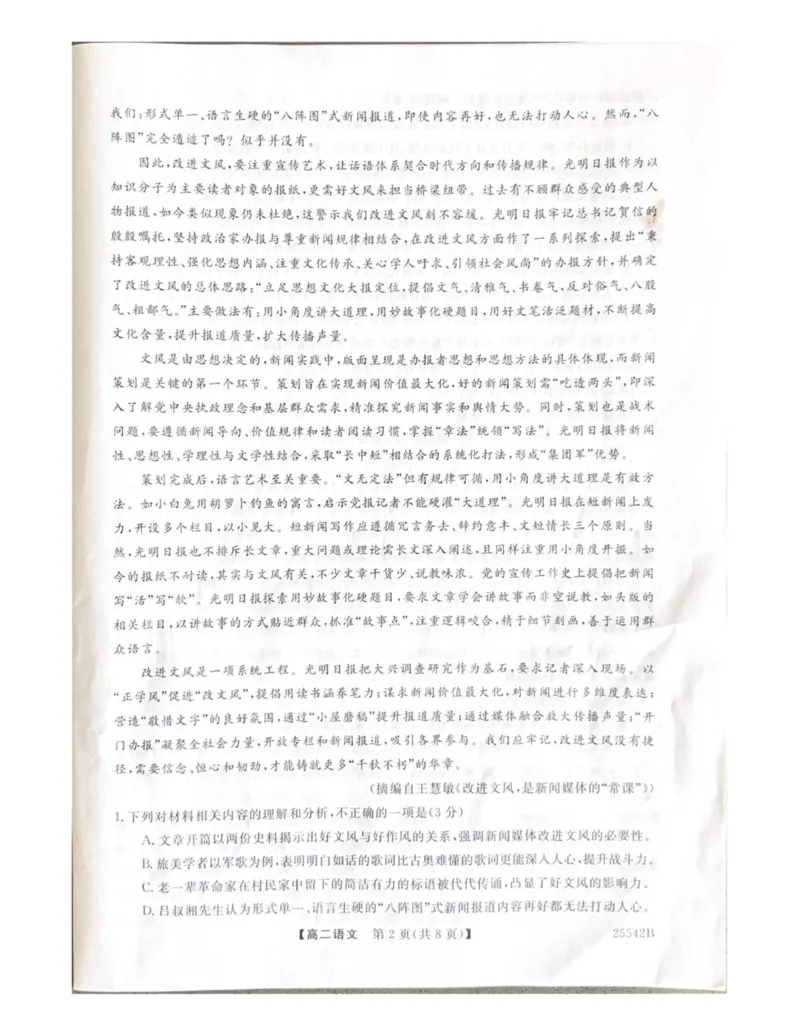 我们:形式单一、语言生硬的“八阵图”式新闻报道,即使内容再好,也无法打动人心。然而,“八
阵图”完全遁迹了吗？似乎并没有。
因此,改进文风,要注重宣传艺术,让话语体系契合时代方向和传播规律。光明日报作为以
知识分子为主要读者对象的报纸,更需好文风来担当桥梁纽带。过去有不顾群众感受的典型人
物报道,如今类似现象仍未杜绝,这警示我们改进文风刻不容缓。光明日报牢记总书记贺信的
殷殷嘱托,坚持政治家办报与尊重新闻规律相结合,在改进文风方面作了一系列探索,提出“秉
持客观理性、强化思想内涵、注重文化传承、关心学人吁求、引领社会风尚”的办报方针,并确定
了改进文风的总体思路:“立足思想文化大报定位,提倡文气、清雅气、书卷气,反对俗气、八股
气、粗鄙气。”主要做法有:用小角度讲大道理,用妙故事化硬题目,用好文笔活泛题材,不断提高
文化含量,提升报道质量,扩大传播声量。
文风是由思想决定的,新闻实践中,版面呈现是办报者思想和思想方法的具体体现,而新闻
策划是关键的第一个环节。策划旨在实现新闻价值最大化,好的新闻策划需“吃透两头”,即深
入了解党中央执政理念和基层群众需求,精准探究新闻事实和舆情大势。同时,策划也是战术
问题,要遵循新闻导向、价值规律和读者阅读习惯,掌握“章法”统领“写法”。光明日报将新闻
性、思想性、学理性与文学性结合,采取“长中短”相结合的系统化打法,形成“集团军”优势。
策划完成后,语言艺术至关重要。“文无定法”但有规律可循,用小角度讲大道理是有效方
法。如小白兔用胡萝卜钓鱼的寓言,启示党报记者不能硬灌“大道理”。光明日报在短新闻上发
力,开设多个栏目,以小见大。短新闻写作应遵循冗言务去、辞约意丰、文短情长三个原则。当
然,光明日报也不排斥长文章,重大问题或理论需长文深入阐述,且同样注重用小角度开掘。如
今的报纸不耐读,其实与文风有关,不少文章干货少、说教味浓。党的宣传工作史上提倡把新闻
写“活”写“软”。光明日报探索用妙故事化硬题目,要求文章学会讲故事而非空说教,如头版的
相关栏目,以讲故事的方式贴近群众,抓准“故事点”,注重逻辑咬合,精于细节刻画,善于运用群
众语言。
改进文风是一项系统工程。光明日报把大兴调查研究作为基石,要求记者深入现场。以
“正学风”促进“改文风”,提倡用读书涵养笔力;谋求新闻价值最大化,对新闻进行多维度表达;
营造“敬惜文字”的良好氛围,通过“小屋磨稿”提升报道质量;通过媒体融合放大传播声量;“开
门办报”凝聚全社会力量,开放专栏和新闻报道,吸引各界参与。我们应牢记,改进文风没有捷
径,需要信念、恒心和韧劲,才能铸就更多“千秋不朽”的华章。
(摘编自王慧敏《改进文风,是新闻媒体的“常课”》)
1.下列对材料相关内容的理解和分析,不正确的一项是(3分)
A.文章开篇以两份史料揭示出好文风与好作风的关系,强调新闻媒体改进文风的必要性。
B.旅美学者以军歌为例,表明明白如话的歌词比古奥难懂的歌词更能深入人心,提升战斗力。
C.老一辈革命家在村民家中留下的简洁有力的标语被代代传诵,凸显了好文风的影响力。
D.吕叔湘先生认为形式单一、语言生硬的“八阵图”式新闻报道内容再好都无法打动人心。
【高二语文 第2页(共8页)】
25542B